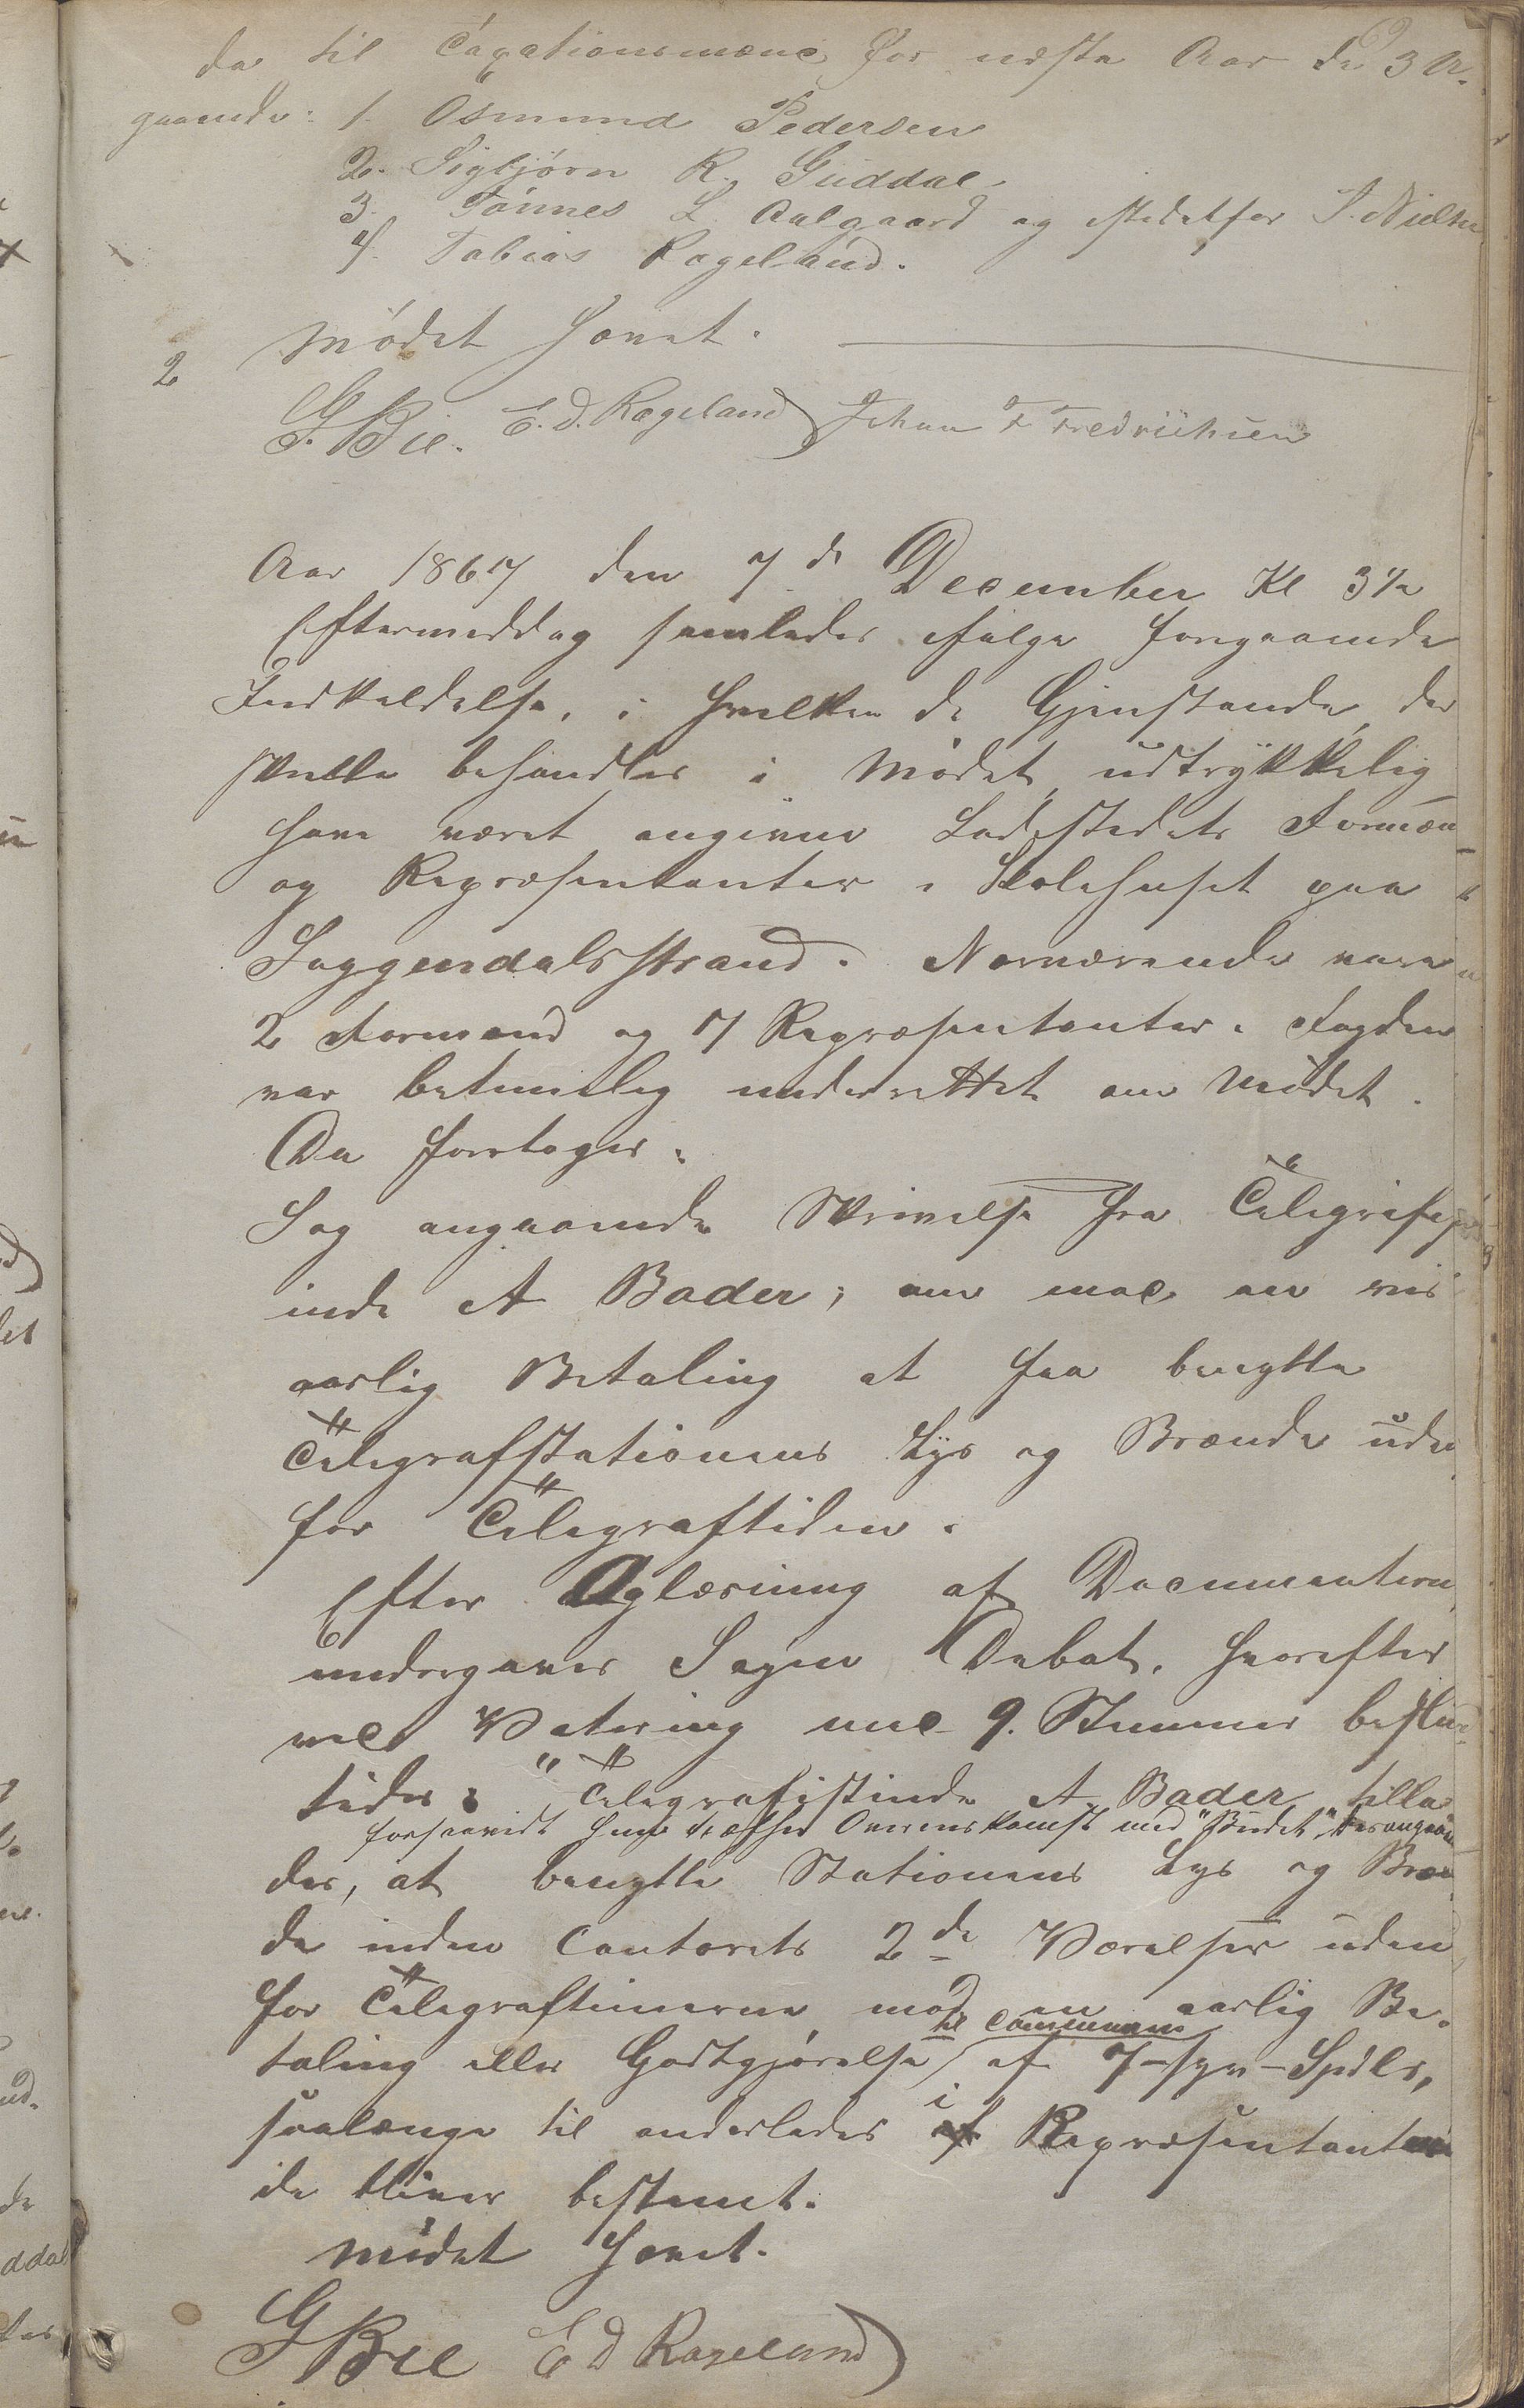 69
da til Taxationsmænd for næste Aar de 3 A.
gaaende: 1. Osmund Pedersen
2. Sigbjørn R. Guddal
3. Tønnes L. Aalgaard og istedetfor S. Nielsen
4. Tobias Rageland.
2 Mødet hævet.
G. Bie. E. D. Rageland Johan F Fredrichsen
Aar 1867 den 7de December Kl 3½
Eftermiddag samledes ifølge foregaaende
Indkaldelse, i hvilken de Gjenstande, der
skulle behandles i Mødet, udtrykkelig
have været angivne Ladestedets Formæn
og Repræsentanter i Skolehuset paa
Soggendalsstrand. Nærværende vare
2 Formænd og 7 Repræsentanter. Fogden
var betimelig underrettet om Mødet.
Da foretoges:
Sag angaaende Skrivelse fra Telegrafist
inde A Bader; om mod en vis
aarlig Betaling at faa benytte
Telegrafstationens Lys og Brænde uden
for Telegraftiden.
Efter Oplæsning af Documenterne
undergaves Sagen Debat, hvorefter
ved Votering med 9. Stemmer beslut-
tedes: "Telegrafistinde A. Bader tilla
forsaavidt hun træffer Overenskomst med "Budet" desangaaen
des, at benytte Stationens Lys og Bræn
de inden Contorets 2de Værelser uden
for Telegraftimerne, mod en aarlig Be-
til Communen
taling eller Godtgjørelse af 7-syv-Spdlr,
i
saalænge til anderledes af Repræsentanter
de bliver bestemt.
Mødet hævet.
G Bie E D Rageland